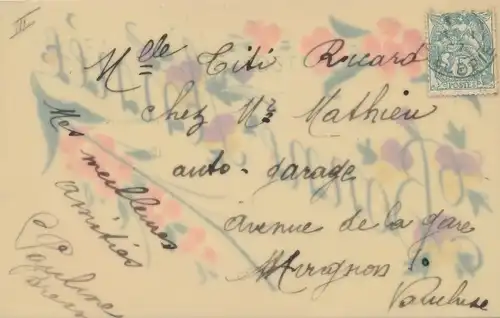 III
Mlle Titi Ricard
chez Mr Mathieu
auto-garage
avenue de la gare
Avignon
Vaucluse
Mes meilleures
amitiés
Pauline